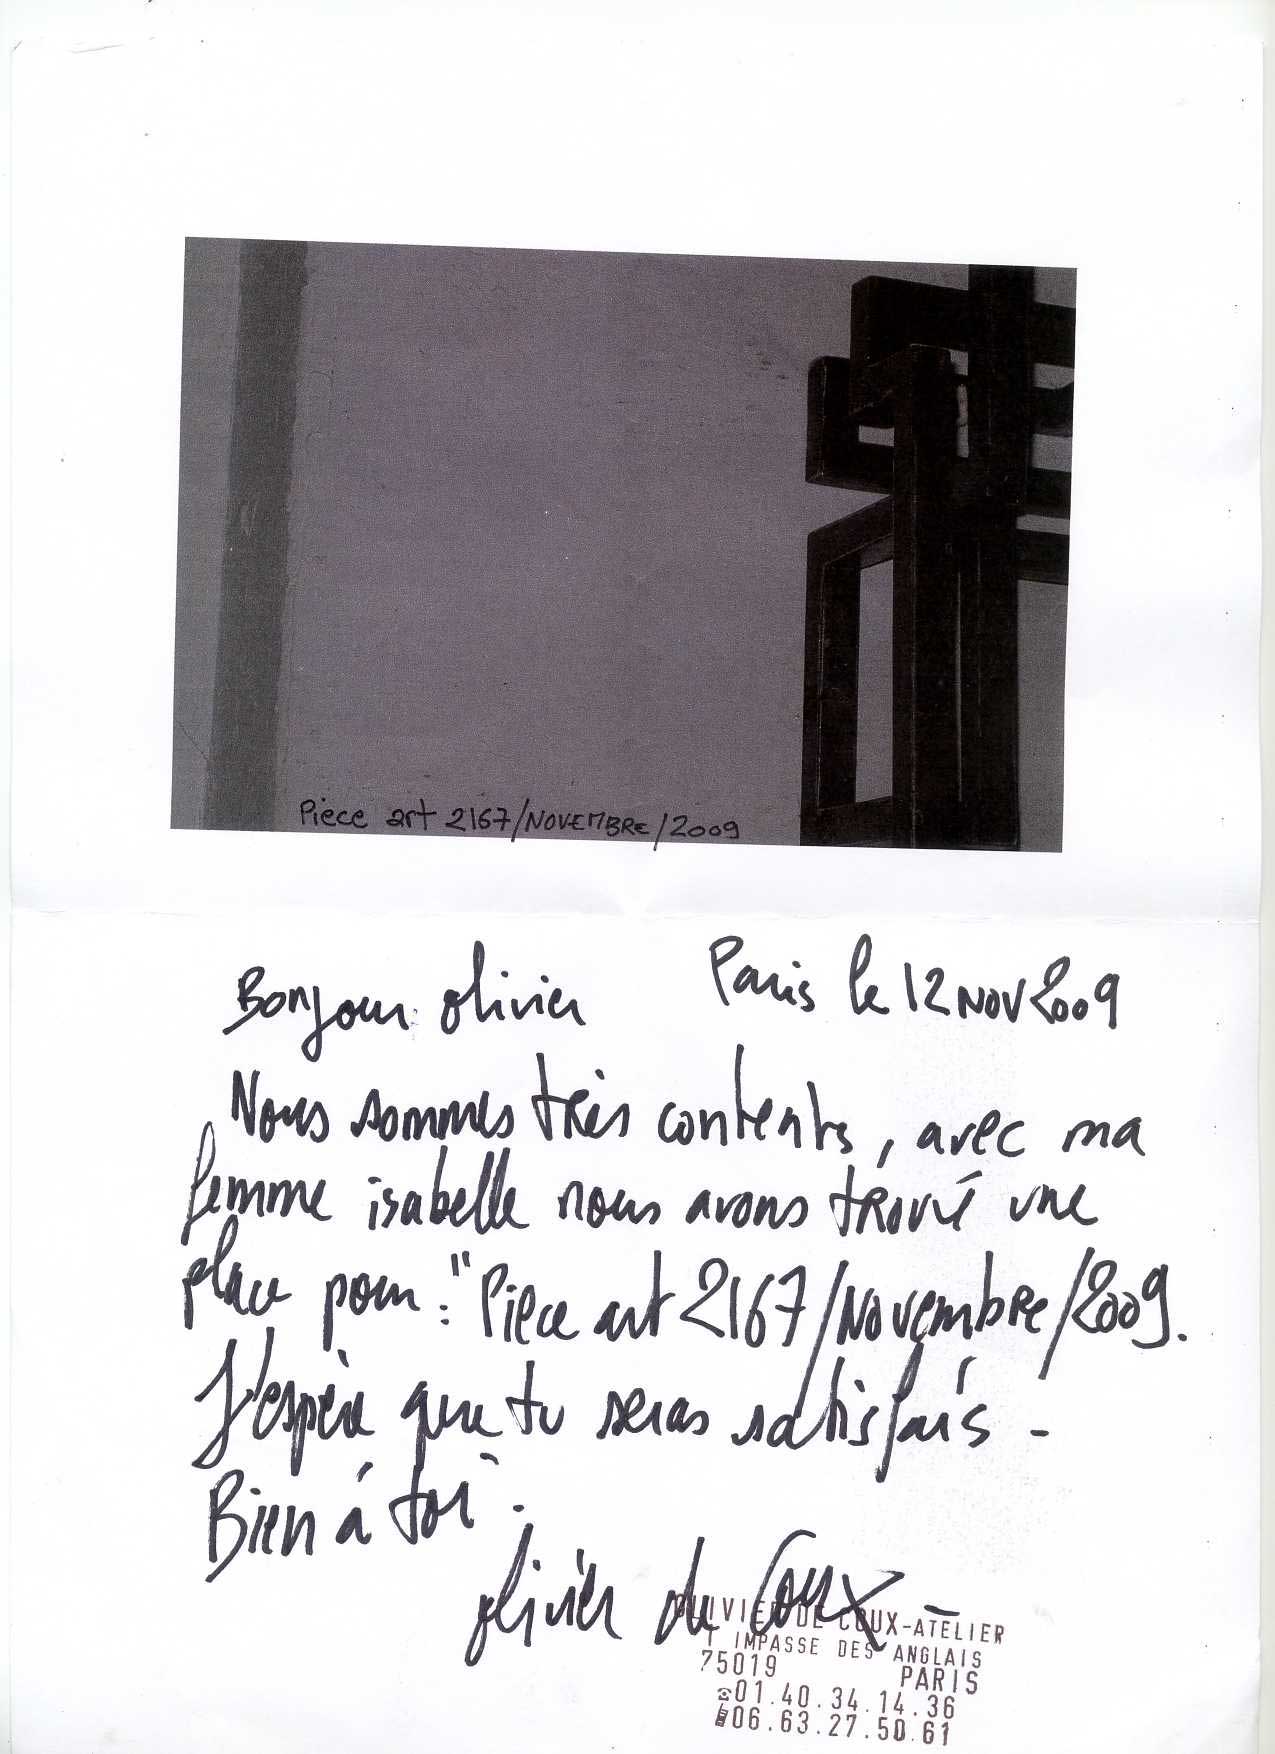 Pièce art 2167/NOVEMBRE/2009
Bonjour olivier Paris le 12 NOV 2009
Nous sommes très contents, avec ma
femme isabelle nous avons trouvé une
place pour : "Pièce art 2167/Novembre/2009.
J'espère que tu seras satisfais -
Bien à toi.
olivier de Coux -
OLIVIER DE COUX-ATELIER
1 IMPASSE DES ANGLAIS
75019 PARIS
☎01.40.34.14.36
06.63.27.50.61